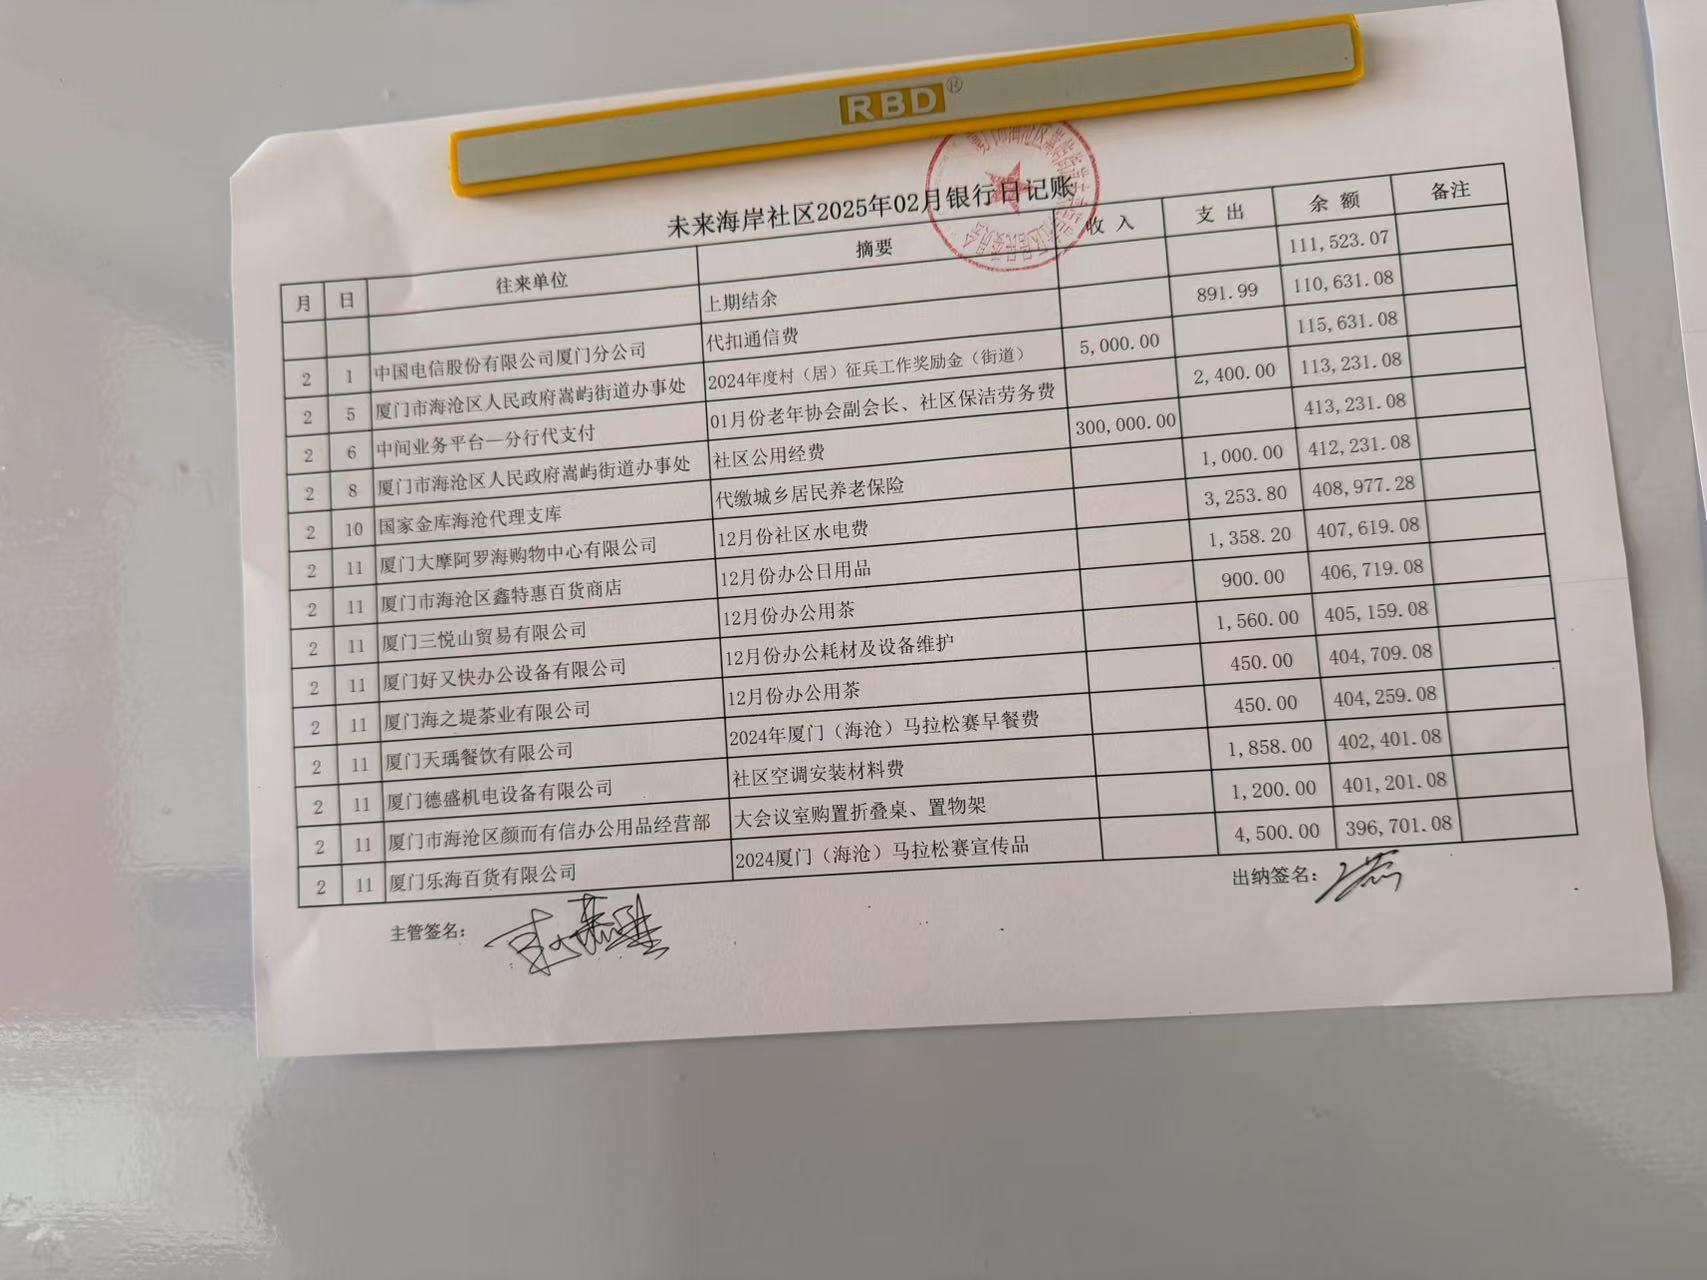 RBD®
未来海岸社区2025年02月银行日记账
月 日 往来单位 摘要 收 入 支 出 余 额 备注
上期结余 111,523.07
2 1 中国电信股份有限公司厦门分公司 代扣通信费 891.99 110,631.08
2 5 厦门市海沧区人民政府嵩屿街道办事处 2024年度村（居）征兵工作奖励金（街道） 5,000.00 115,631.08
2 6 中间业务平台—分行代支付 01月份老年协会副会长、社区保洁劳务费 2,400.00 113,231.08
2 8 厦门市海沧区人民政府嵩屿街道办事处 社区公用经费 300,000.00 413,231.08
2 10 国家金库海沧代理支库 代缴城乡居民养老保险 1,000.00 412,231.08
2 11 厦门大摩阿罗海购物中心有限公司 12月份社区水电费 3,253.80 408,977.28
2 11 厦门市海沧区鑫特惠百货商店 12月份办公日用品 1,358.20 407,619.08
2 11 厦门三悦山贸易有限公司 12月份办公用茶 900.00 406,719.08
2 11 厦门好又快办公设备有限公司 12月份办公耗材及设备维护 1,560.00 405,159.08
2 11 厦门海之堤茶业有限公司 12月份办公用茶 450.00 404,709.08
2 11 厦门天瑀餐饮有限公司 2024年厦门（海沧）马拉松赛早餐费 450.00 404,259.08
2 11 厦门德盛机电设备有限公司 社区空调安装材料费 1,858.00 402,401.08
2 11 厦门市海沧区颜而有信办公用品经营部 大会议室购置折叠桌、置物架 1,200.00 401,201.08
2 11 厦门乐海百货有限公司 2024厦门（海沧）马拉松赛宣传品 4,500.00 396,701.08
主管签名： 出纳签名：